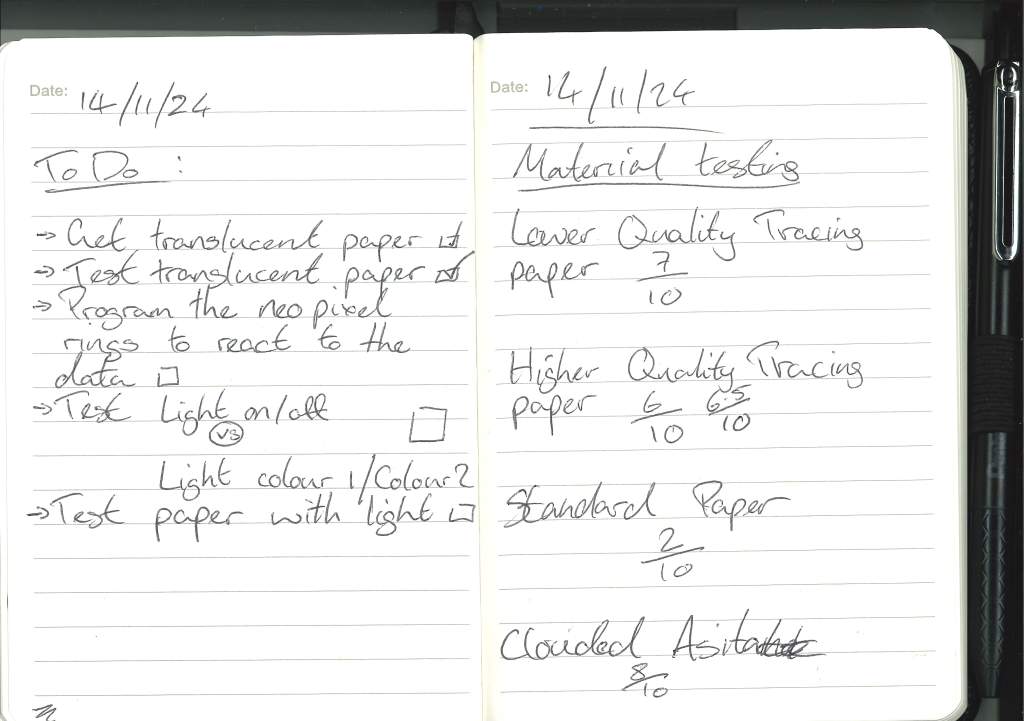 Date: 14/11/24
To Do :
→ Get translucent paper ☑
→ Test translucent paper ☑
→ Program the neo pixel
rings to react to the
data ☐
→ Test Light on/off ☐
vs
Light colour 1/Colour 2
→ Test paper with light ☐
Date: 14/11/24
Material testing
Lower Quality Tracing
paper 7/10
Higher Quality Tracing
paper 6/10 6.5/10
Standard Paper
2/10
Clouded
8/10